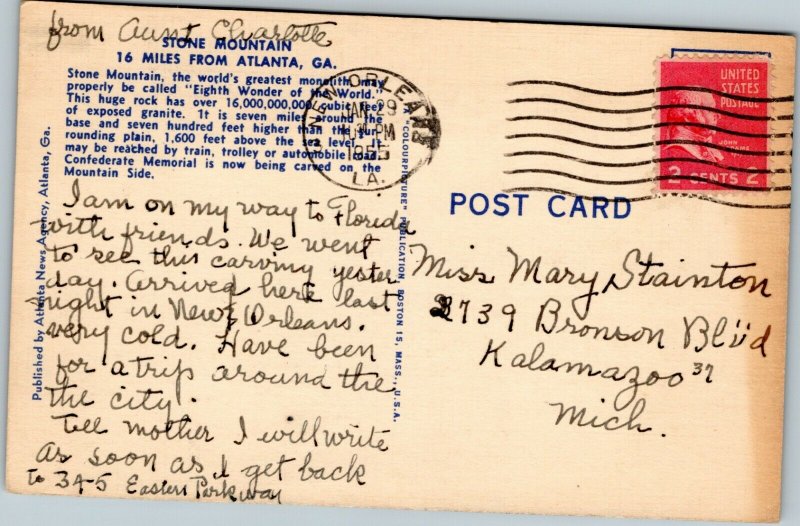 from Aunt Charlotte
STONE MOUNTAIN
16 MILES FROM ATLANTA, GA.
Stone Mountain, the world's greatest monolith may
properly be called "Eighth Wonder of the World."
This huge rock has over 16,000,000,000 cubic feet
of exposed granite. It is seven miles around the
base and seven hundred feet higher than the sur-
rounding plain, 1,600 feet above the sea level. It
may be reached by train, trolley or automobile road.
Confederate Memorial is now being carved on the
Mountain Side.
I am on my way to Florida
with friends. We went
to see this carving yester
day. Arrived here last
night in New Orleans.
very cold. Have been
for a trip around the
the city.
Tell mother I will write
as soon as I get back
to 345 Eastern Parkway
Published by Atlanta News Agency, Atlanta, Ga.
"COLOURPICTURE" PUBLICATION, BOSTON 15, MASS., U.S.A.
NEW ORLEANS
JAN 29
PM
1955
LA.
UNITED
STATES
POSTAGE
JOHN ADAMS
2 CENTS 2
POST CARD
Miss Mary Stainton
2739 Bronson Blvd
Kalamazoo 37
Mich.